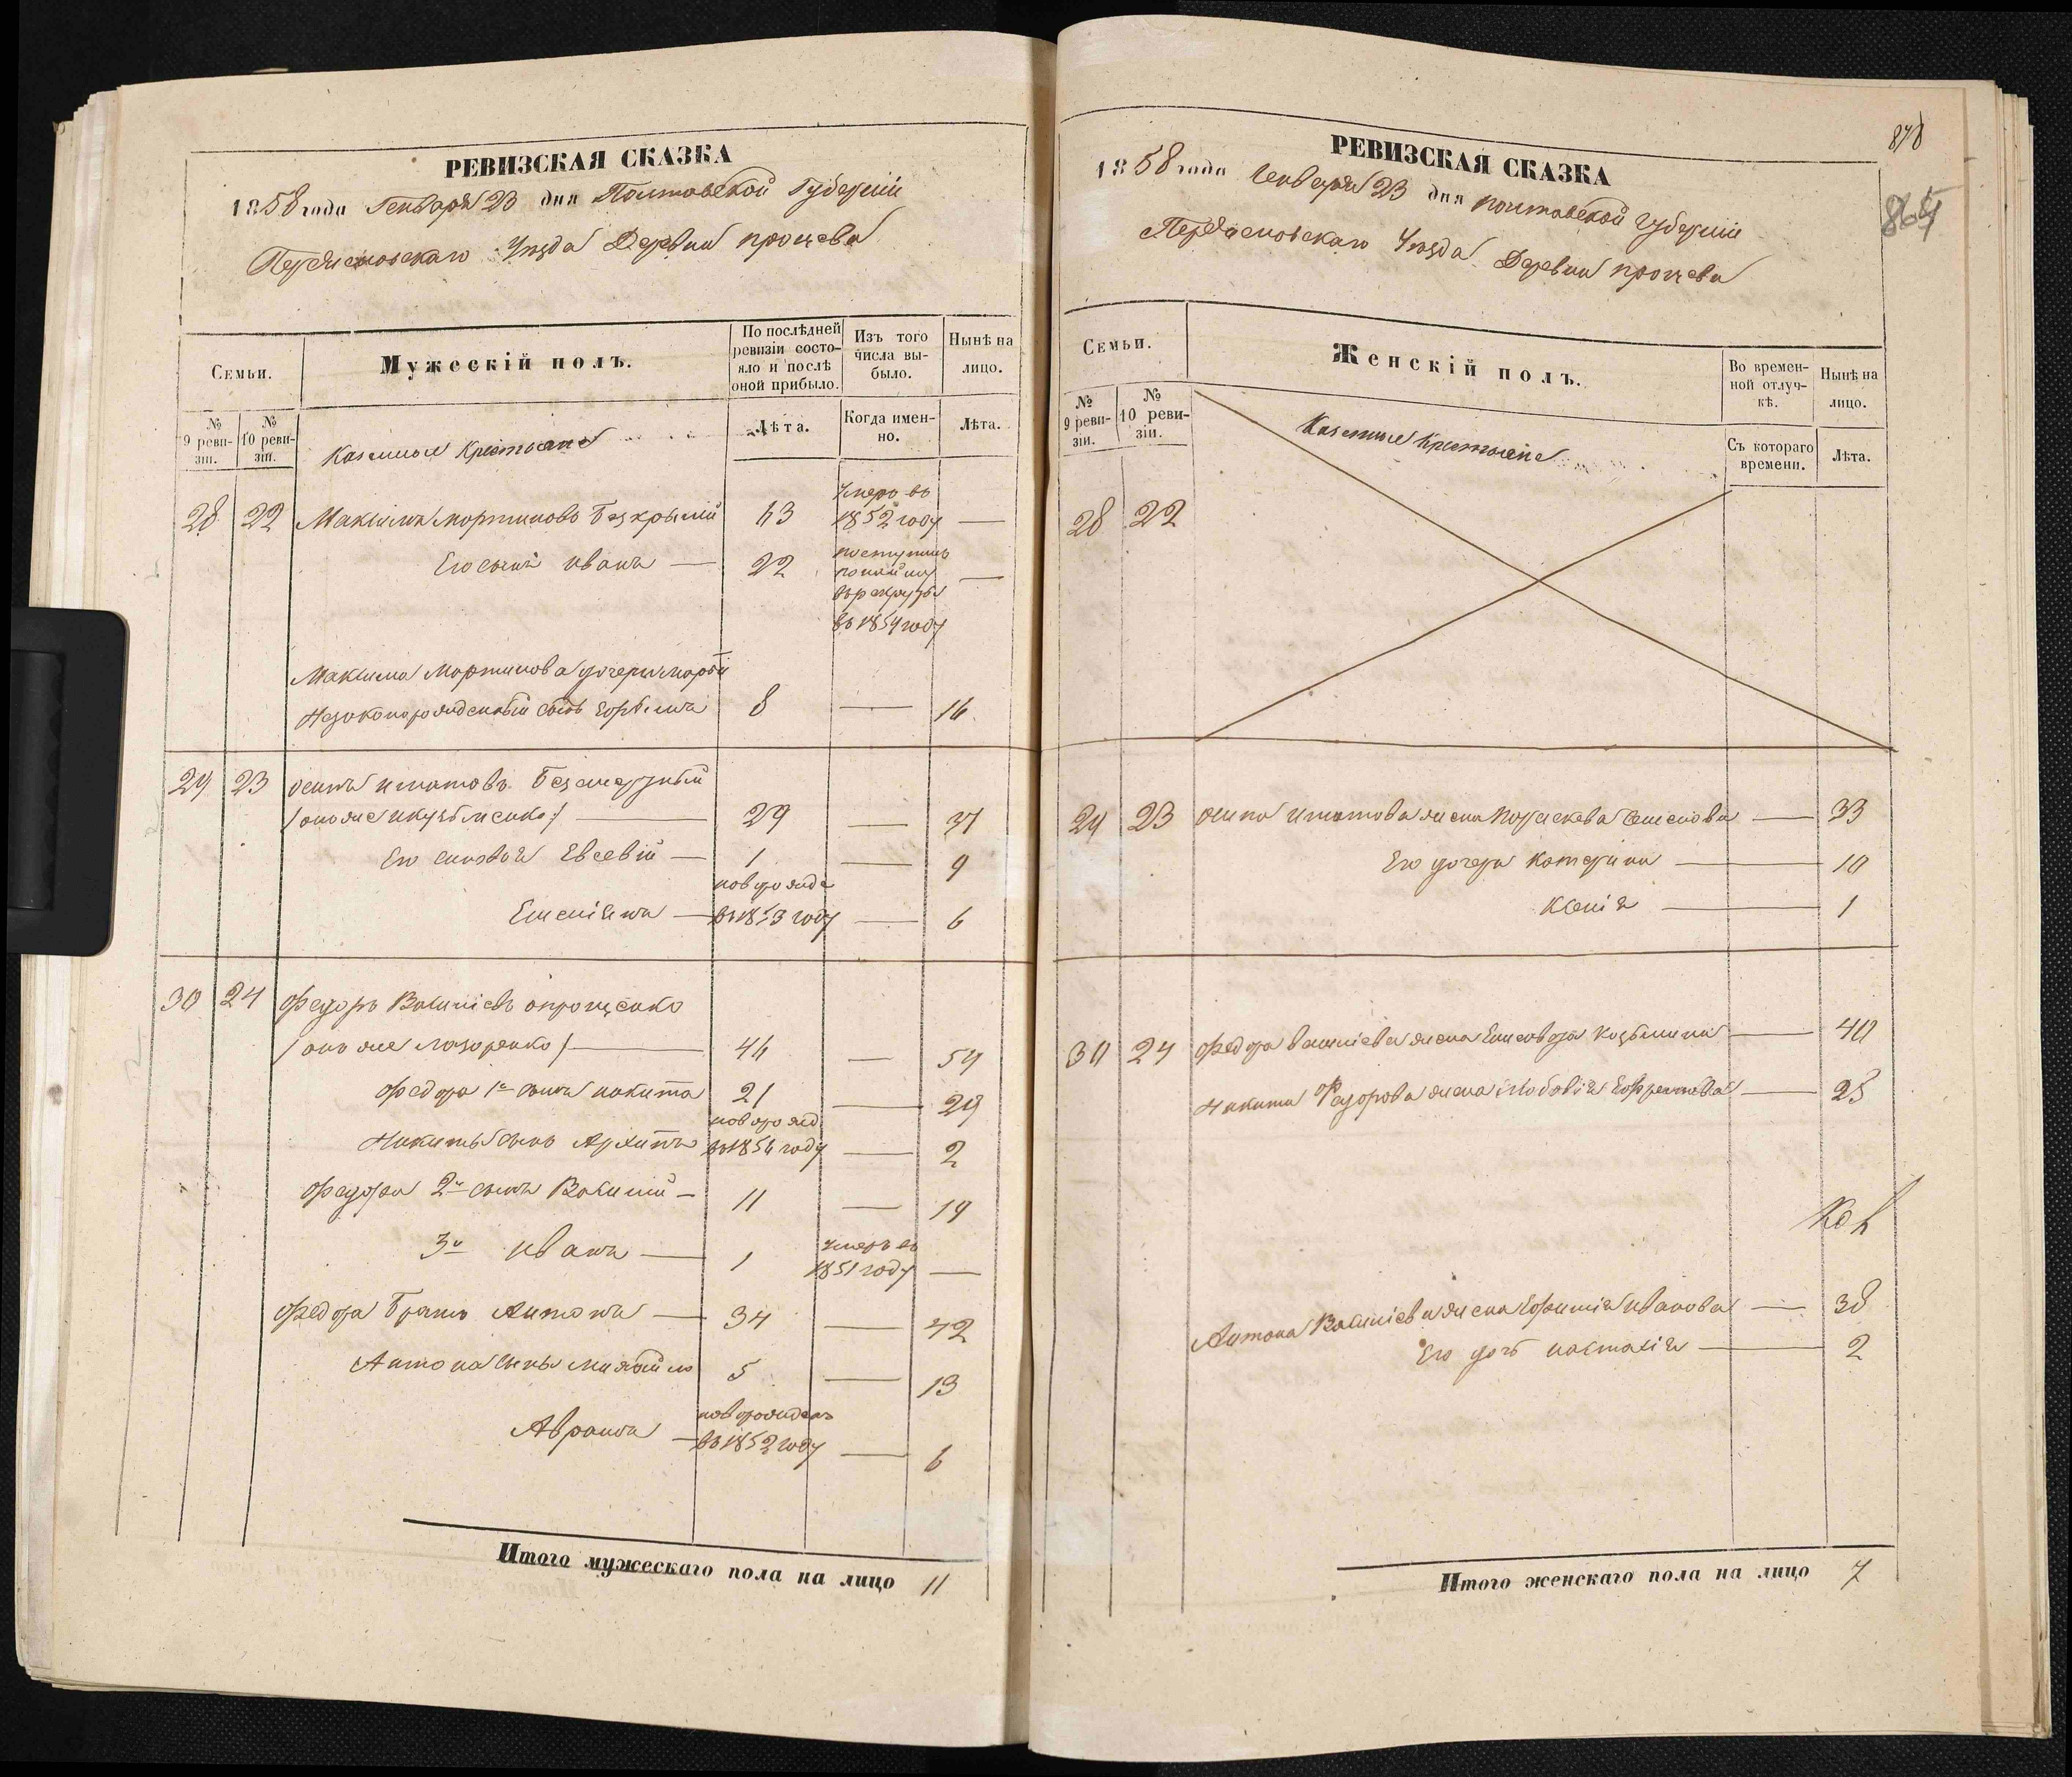 РЕВИЗСКАЯ СКАЗКА
1858 года Генваря 23 дня Полтавской Губерніи
Переясловскаго Уѣзда Деревни Процева
Семьи.
Мужескій полъ.
По послѣдней ревизіи состояло и послѣ оной прибыло.
Изъ того числа выбыло.
Нынѣ на лицо.
№ 9 ревизіи.
№ 10 ревизіи.
Казенные Крестьяне
Лѣта.
Когда именно.
Лѣта.
28 22 Максимъ Мартиновъ Безкрылій 63 Умеръ въ 1852 году —
Его сынъ Иванъ — 22 поступилъ по найму въ рекруты въ 1854 году —
Максима Мартинова дочери Марѳи
Незаконорожденный сынъ 8 — 16
29 23 Осипъ Игнатовъ Безмертный
/онъ же и Кузменко/ — 29 — 37
Его сыновья Евсевій — 1 — 9
Емеліянъ — новорожде въ 1853 году — 6
30 24 Федоръ Василіевъ Опрощенко
/онъ же Лазоренко/ — 46 — 54
Федора 1й сынъ Никита 21 — 29
Никиты сынъ Архипъ новорожд въ 1856 году — 2
Федора 2й сынъ Василій — 11 — 19
3й Иванъ — 1 Умеръ въ 1851 году —
Федора Братъ Антонъ — 34 — 42
Антона сыны Михайло 5 — 13
Аврамъ — новорожденъ въ 1852 году — 6
Итого мужескаго пола на лицо 11
878
РЕВИЗСКАЯ СКАЗКА
1858 года Генваря 23 дня Полтавской Губерніи
Переясловскаго Уѣзда Деревни Процева
Семьи.
Женскій полъ.
Во временной отлучкѣ.
Нынѣ на лицо.
№ 9 ревизіи.
№ 10 ревизіи.
Казенные Крестьяне
Съ котораго времени.
Лѣта.
28 22
29 23 Осипа Игнатова жена Параскева Семенова — 33
Его дочери Катерина — 10
Ксенія — 1
30 24 Федора Василіева жена Елисавета Козьмина — 40
Никиты Федорова жена Любовія Ефремова — 25
Антона Василіева жена Ефимія Иванова — 38
Его дочь Наталія — 2
Итого женскаго пола на лицо 7